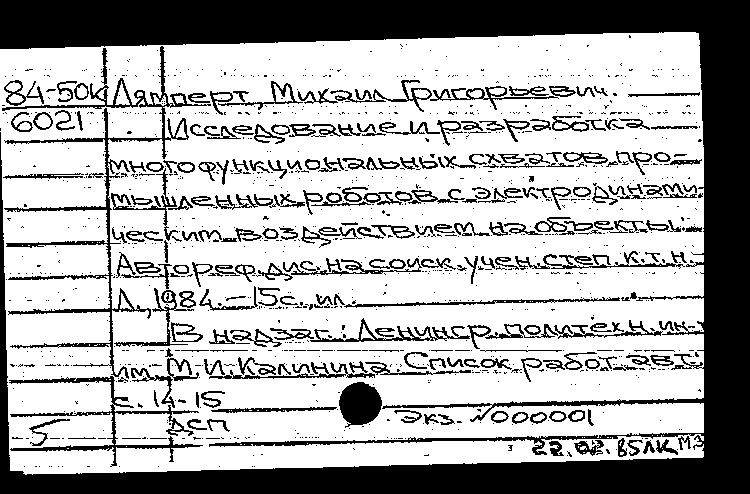 84-50к Лямперт, Михаил Григорьевич.
6021 Исследование и разработка
многофункциональных схватов про-
мышленных роботов с электродинами-
ческим воздействием на объекты:
Автореф. дис. на соиск. учен. степ. к.т.н.-
Л., 1984. - 15с., ил.
В надзаг.: Ленингр. политехн. ин-т
им. М.И. Калинина. Список работ авт.:
с. 14-15
ДСП Экз. №000001
5
22.02.85ЛК МЗ